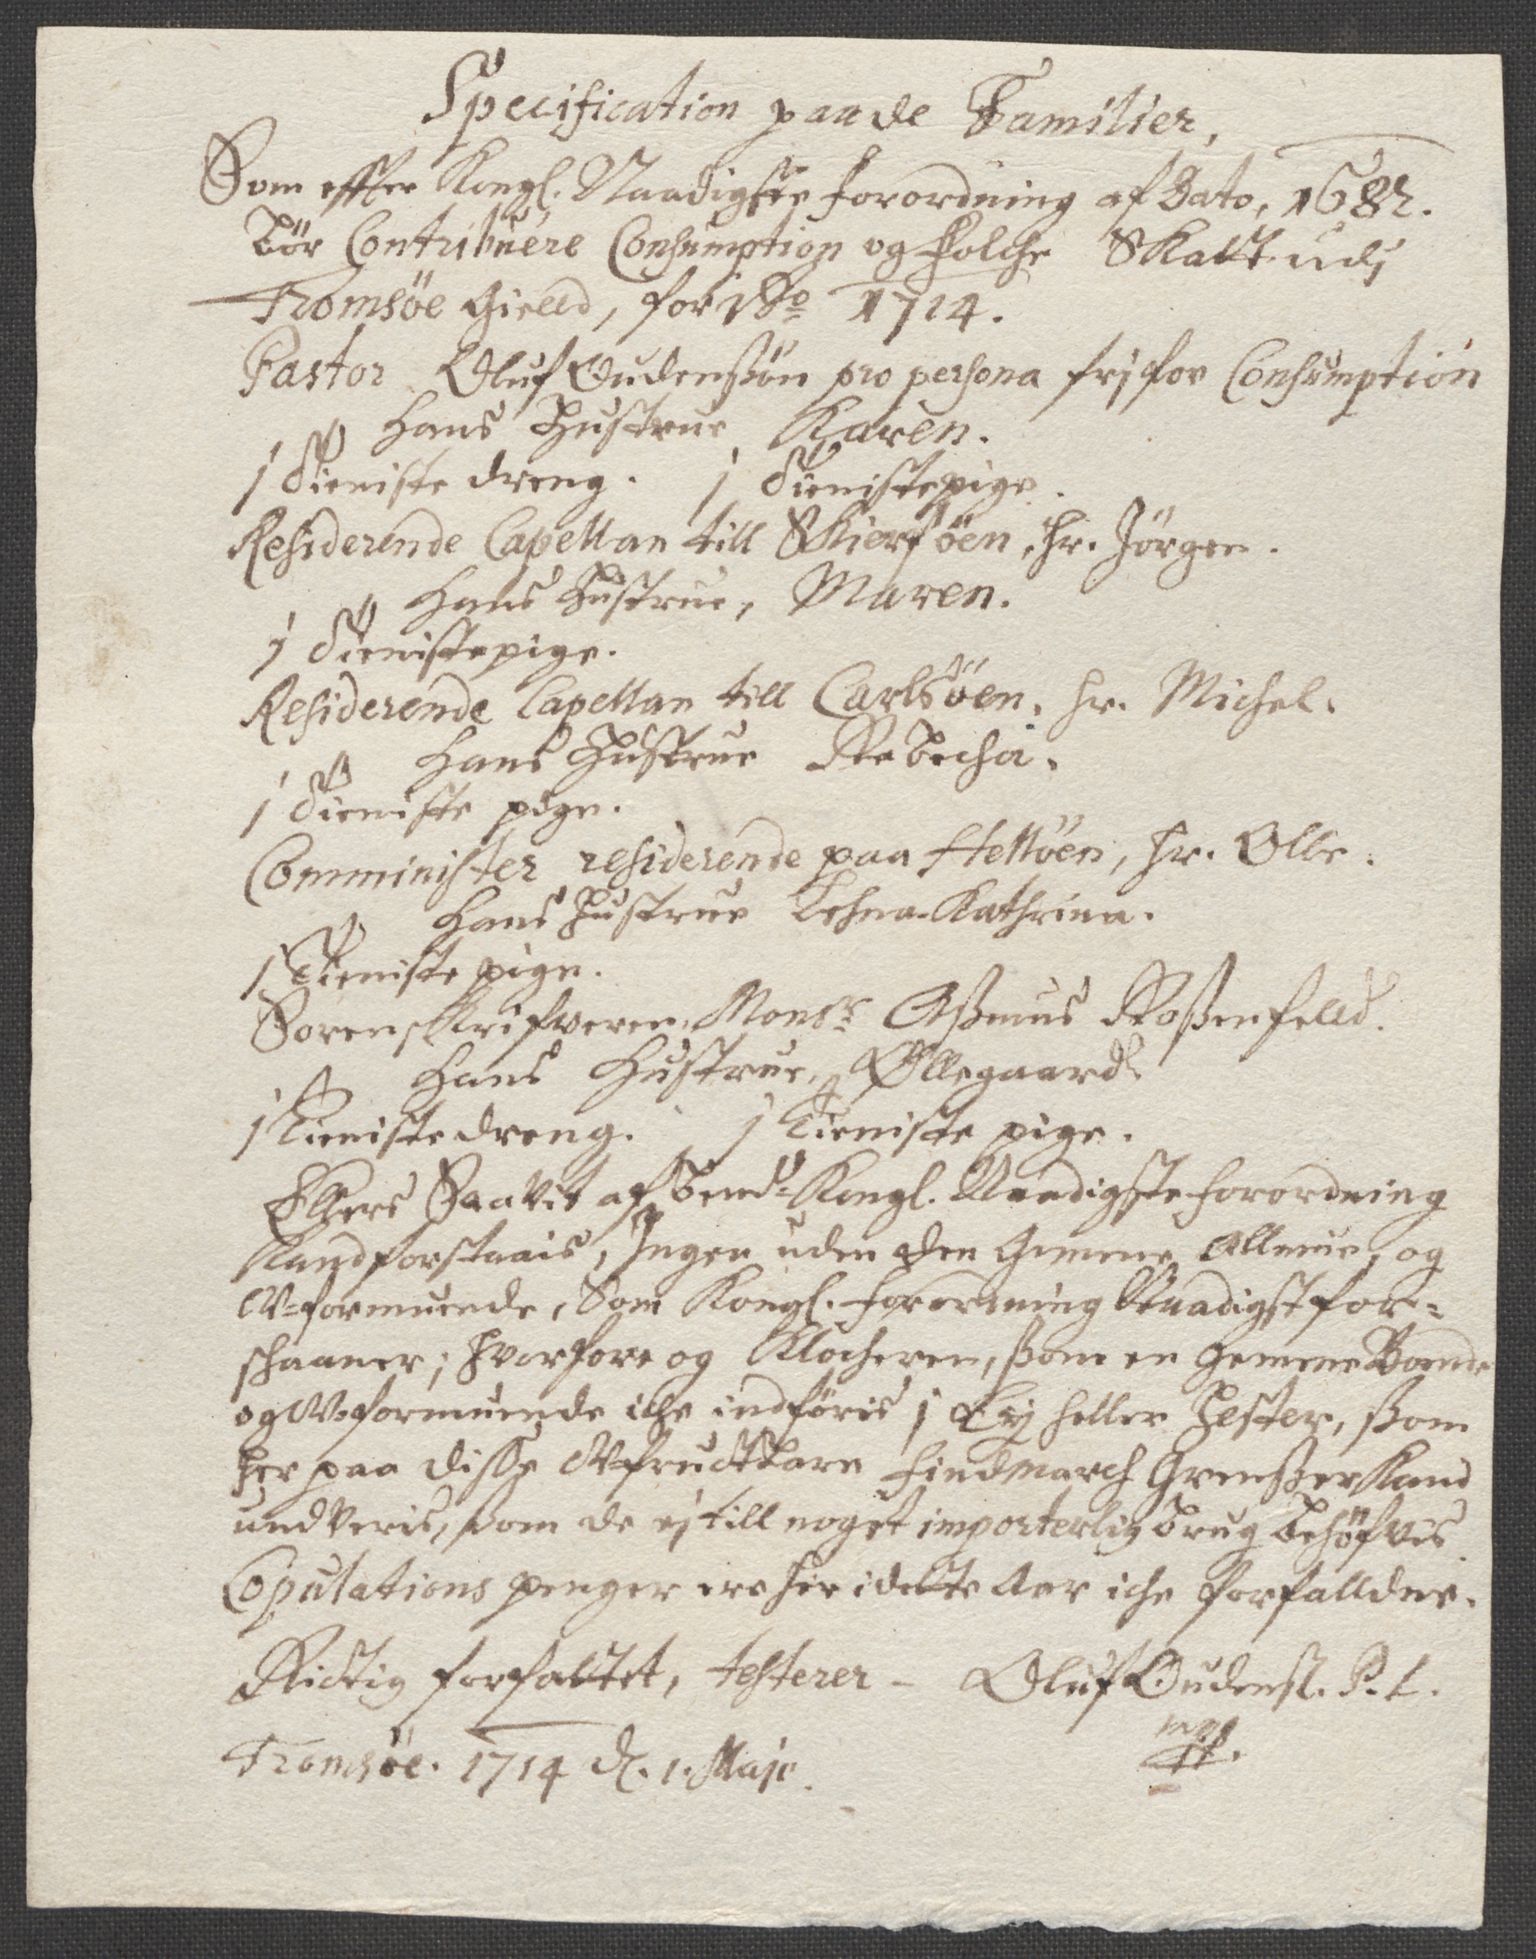 Specification paa de Familier,
Som effter Kongl. Naadigste forordning af Dato, 1682.
bör Contribuere Consumption og folche Skatt udj
Tromsöe Gield, for Ao 1714.
Pastor Oluf Oudenßön pro persona frj for Consumption
hans Hustrue Karen.
1 Tieniste dreng. 1 Tienistepige.
Residerende Capellan till Skierföen, Hr. Jörgen.
hans Hustrue, Maren.
1 Tienistepige.
Residerende Capellan till Carlsöen, Hr. Michel.
hans Hustrue Rebecha.
1 Tieniste pige.
Comminister residerende paa Helöen, Hr. Olle.
hans Hustrue Lehna-Kathrina.
1 Tieniste pige.
Sorenskrifveren, Monsr Aßmus Roßenfelld.
hans Hustrue, Øllegaard.
1 Tieniste dreng. 1 Tieniste pige.
Ellers Saavit af bemd. Kongl. Naadigste forordning
kand forstaais, Ingen uden den Gemene Allmue, og
U-formuende, Som Kongl. forordning Naadigst for-
schaaner; Hvorfore og Klocheren, ßom en Gemene Bonde
og U-formuende iche indföris j Ey heller Hester, ßom
her paa disse Ufructbare Findmarch Grentzer kand
undveris, ßom de ej till noget importerlig brug behöfves
Copulations penger ere her i dette Aar iche forfalldne.
Rictig forfattet, testerer - Oluf Oudenß. P. L.
mpp.
Tromsöe. 1714 d. 1. Maji.